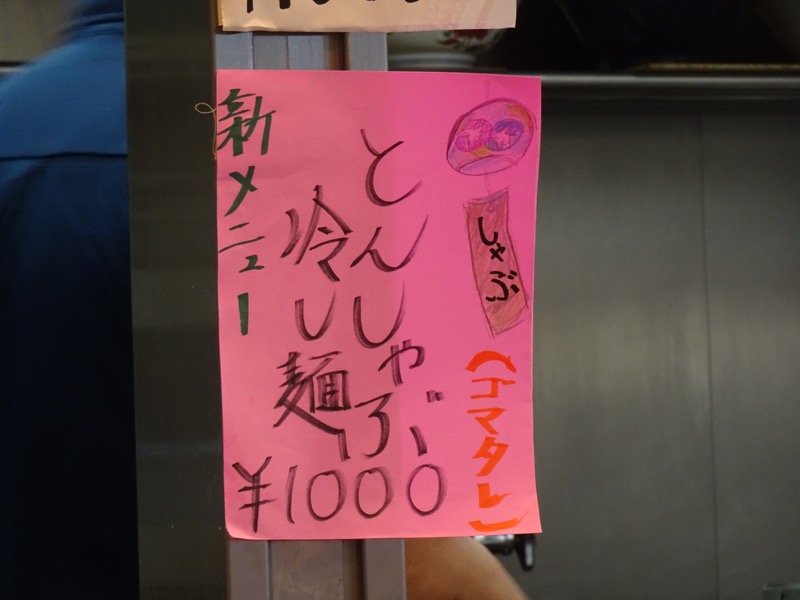 新メニュー
とんしゃぶ
冷し麺
¥1000
しゃぶ
(ゴマタレ)